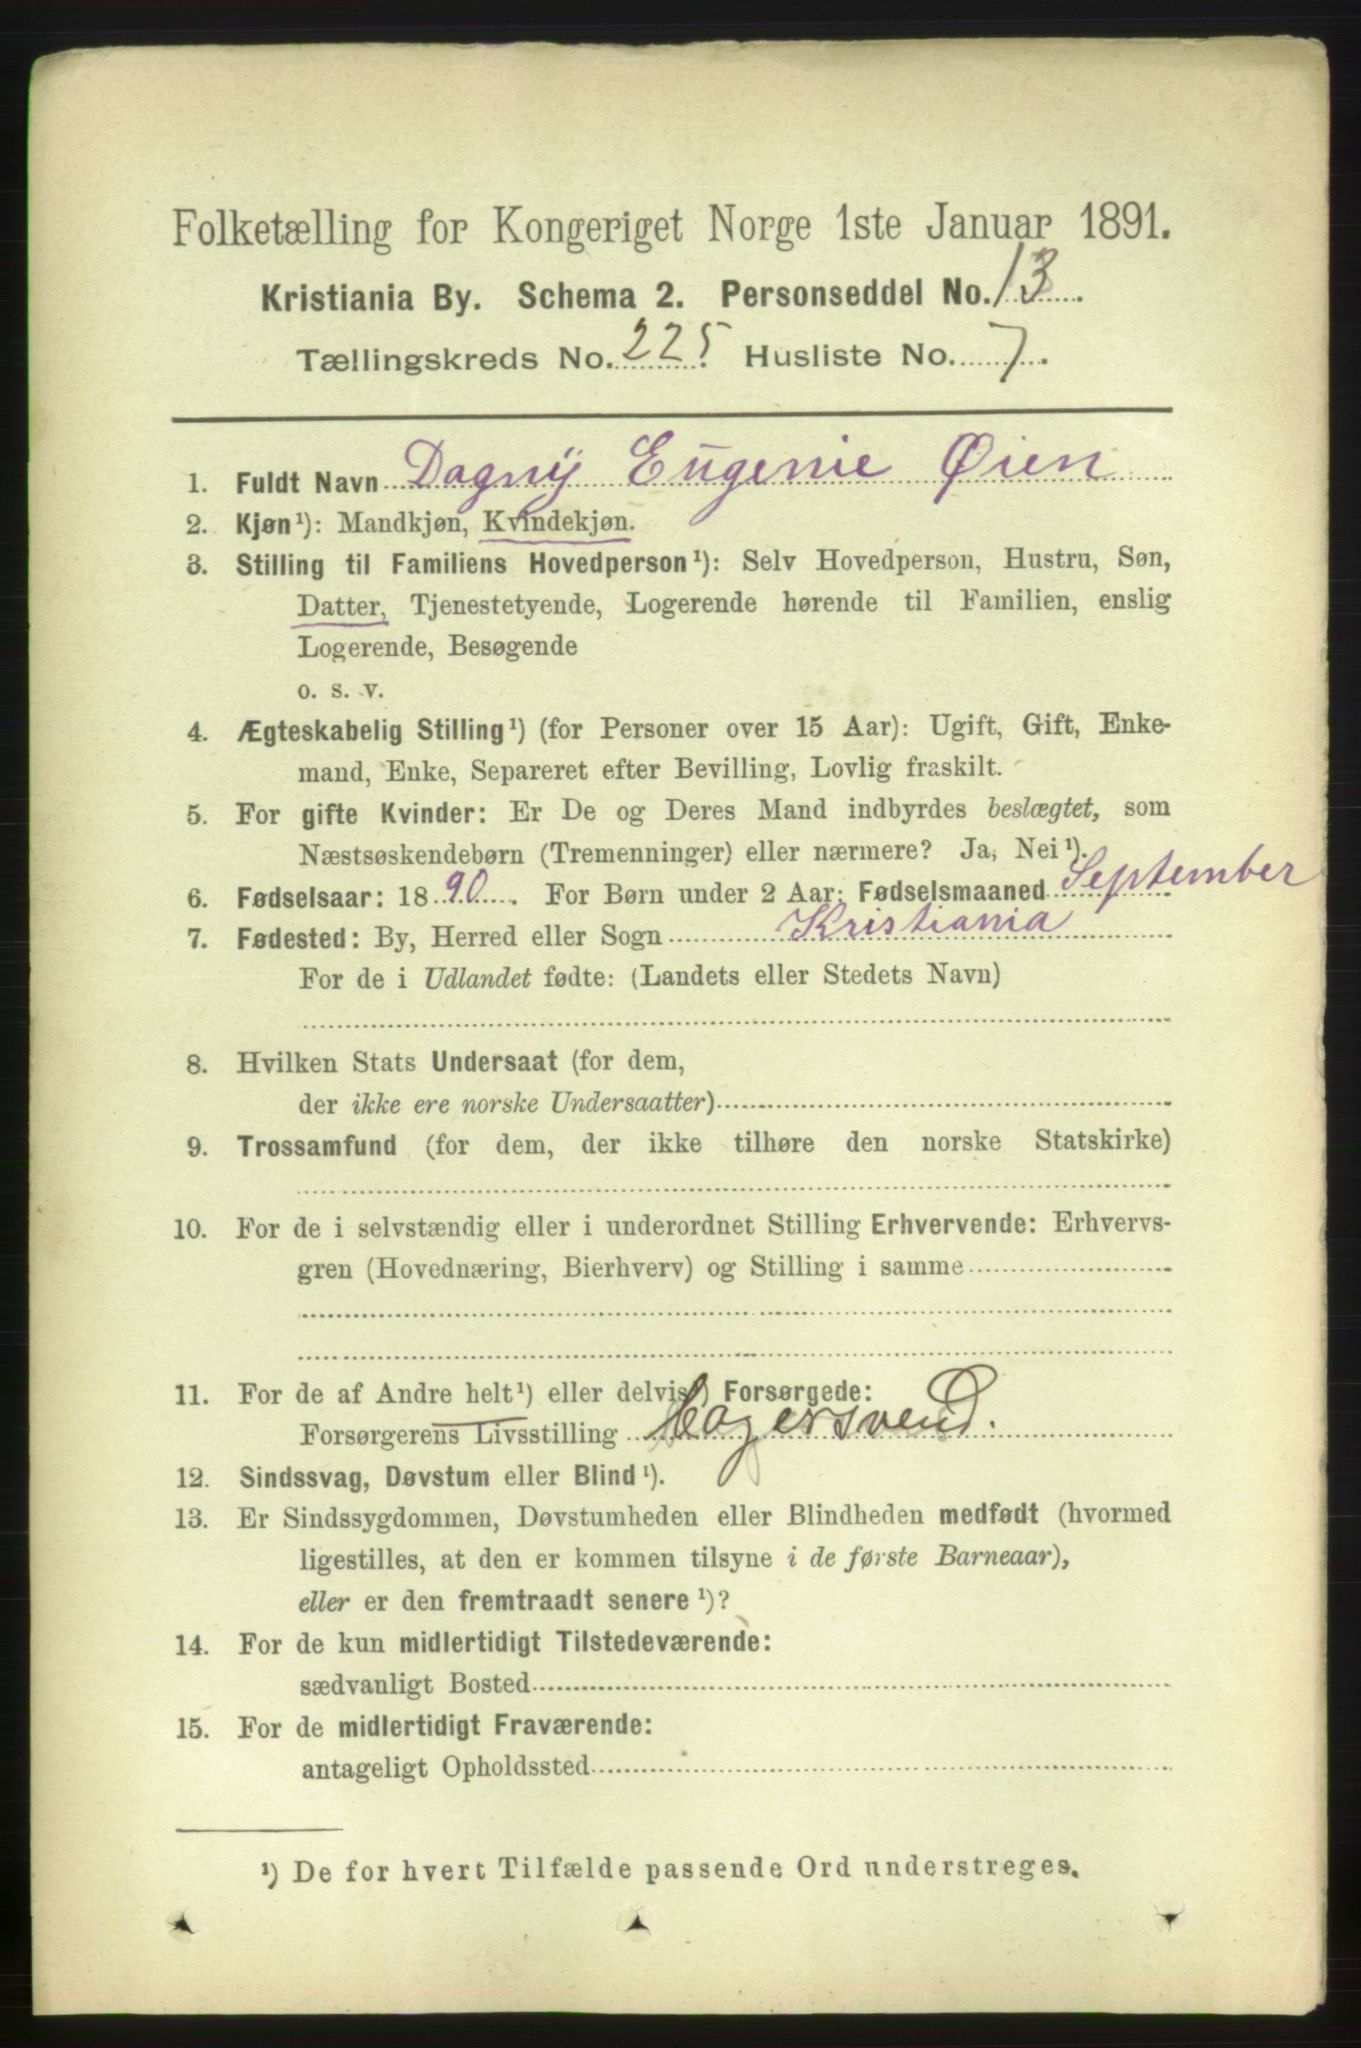 Folketælling for Kongeriget Norge 1ste Januar 1891.
Kristiania By. Schema 2. Personseddel No. 13.
Tællingskreds No. 225. Husliste No. 7.
1. Fuldt Navn Dagny Eugenie Øien
2. Kjøn¹): Mandkjøn, Kvindekjøn.
3. Stilling til Familiens Hovedperson¹): Selv Hovedperson, Hustru, Søn,
Datter, Tjenestetyende, Logerende hørende til Familien, enslig
Logerende, Besøgende
o. s. v.
4. Ægteskabelig Stilling¹) (for Personer over 15 Aar): Ugift, Gift, Enke-
mand, Enke, Separeret efter Bevilling, Lovlig fraskilt.
5. For gifte Kvinder: Er De og Deres Mand indbyrdes beslægtet, som
Næstsøskendebørn (Tremenninger) eller nærmere? Ja, Nei¹).
6. Fødselsaar: 1890. For Børn under 2 Aar: Fødselsmaaned September
7. Fødested: By, Herred eller Sogn Kristiania
For de i Udlandet fødte: (Landets eller Stedets Navn)
8. Hvilken Stats Undersaat (for dem,
der ikke ere norske Undersaatter)
9. Trossamfund (for dem, der ikke tilhøre den norske Statskirke)
10. For de i selvstændig eller i underordnet Stilling Erhvervende: Erhvervs-
gren (Hovednæring, Bierhverv) og Stilling i samme
11. For de af Andre helt¹) eller delvis¹) Forsørgede:
Forsørgerens Livsstilling Bagersvend.
12. Sindssvag, Døvstum eller Blind¹).
13. Er Sindssygdommen, Døvstumheden eller Blindheden medfødt (hvormed
ligestilles, at den er kommen tilsyne i de første Barneaar),
eller er den fremtraadt senere¹)?
14. For de kun midlertidigt Tilstedeværende:
sædvanligt Bosted
15. For de midlertidigt Fraværende:
antageligt Opholdssted
¹) De for hvert Tilfælde passende Ord understreges.